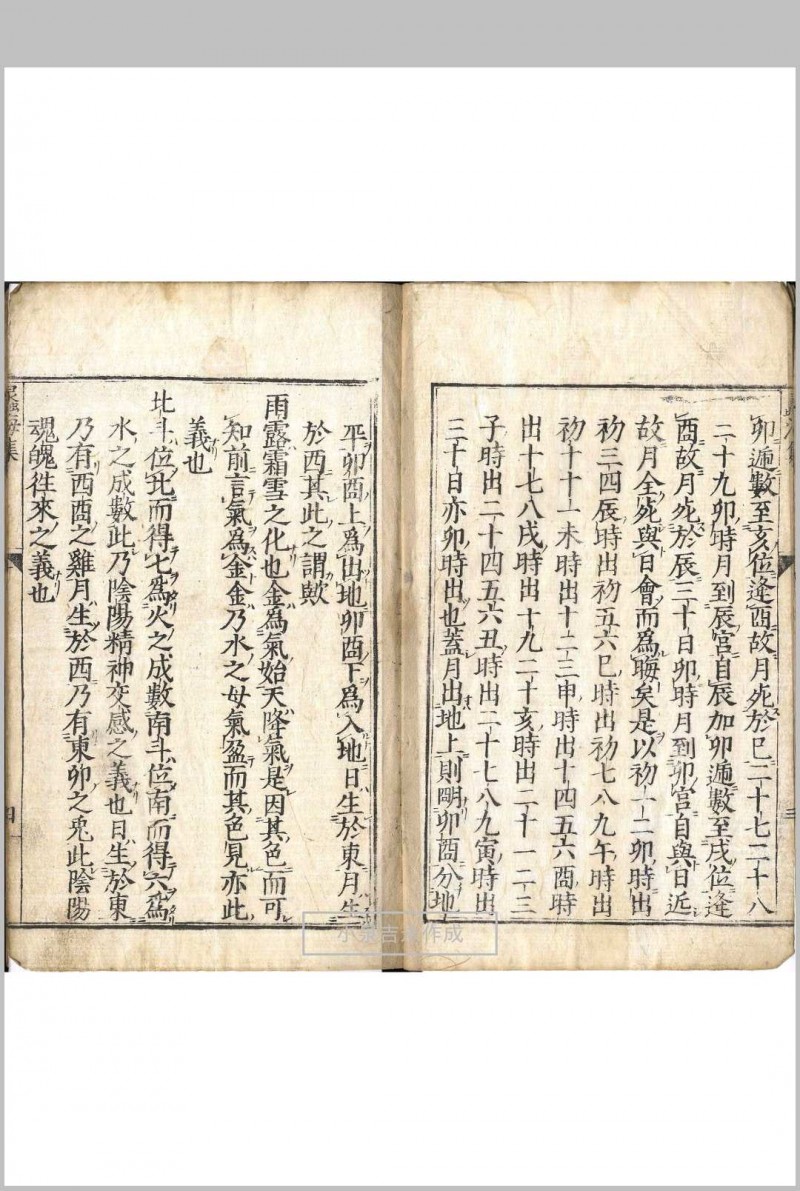 卯遁數至亥位逢酉故月死於巳二十七二十八
二十九卯時月到辰宮自辰加卯遁數至戌位逢
酉故月死於辰三十日卯時月到卯宮自與日近
故月全死與日會而為晦矣是以初一二卯時出
初三四辰時出初五六巳時出初七八九午時出
初十十一未時出十二三申時出十四五六酉時
出十七八戌時出十九二十亥時出二十一二三
子時出二十四五六丑時出二十七八九寅時出
三十日亦卯時出也蓋月出地上則明卯酉分地
平卯酉上為出地卯酉下為入地日生於東月生
於西其此之謂歟
雨露霜雪之化也金為氣始天降氣是因其色而可
知前言氣為金金乃水之母氣盈而其色見亦此
義也
北斗位北而得七為火之成數南斗位南而得六為
水之成數此乃陰陽精神交感之義也日生於東
乃有西酉之雞月生於西乃有東卯之兎此陰陽
魂魄往來之義也
海集
四
三